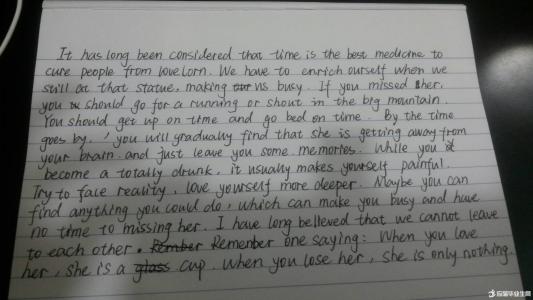 It has long been considered that time is the best medicine to
cure people from lovelorn. We have to enrich ourself when we
still at that statue, making us busy. If you missed her,
you should go for a running or shout in the big mountain.
You should get up on time and go bed on time. By the time
goes by, you will gradually find that she is getting away from
your brain and just leave you some memories. While you
become a totally drunk, it usually makes yourself painful.
Try to face reality, love yourself more deeper. Maybe you can
find anything you could do, which can make you busy and have
no time to missing her. I have long believed that we cannot leave
to each other. Remenber one saying: When you love
her, she is a cup. When you lose her, she is only nothing.
应届毕业生网